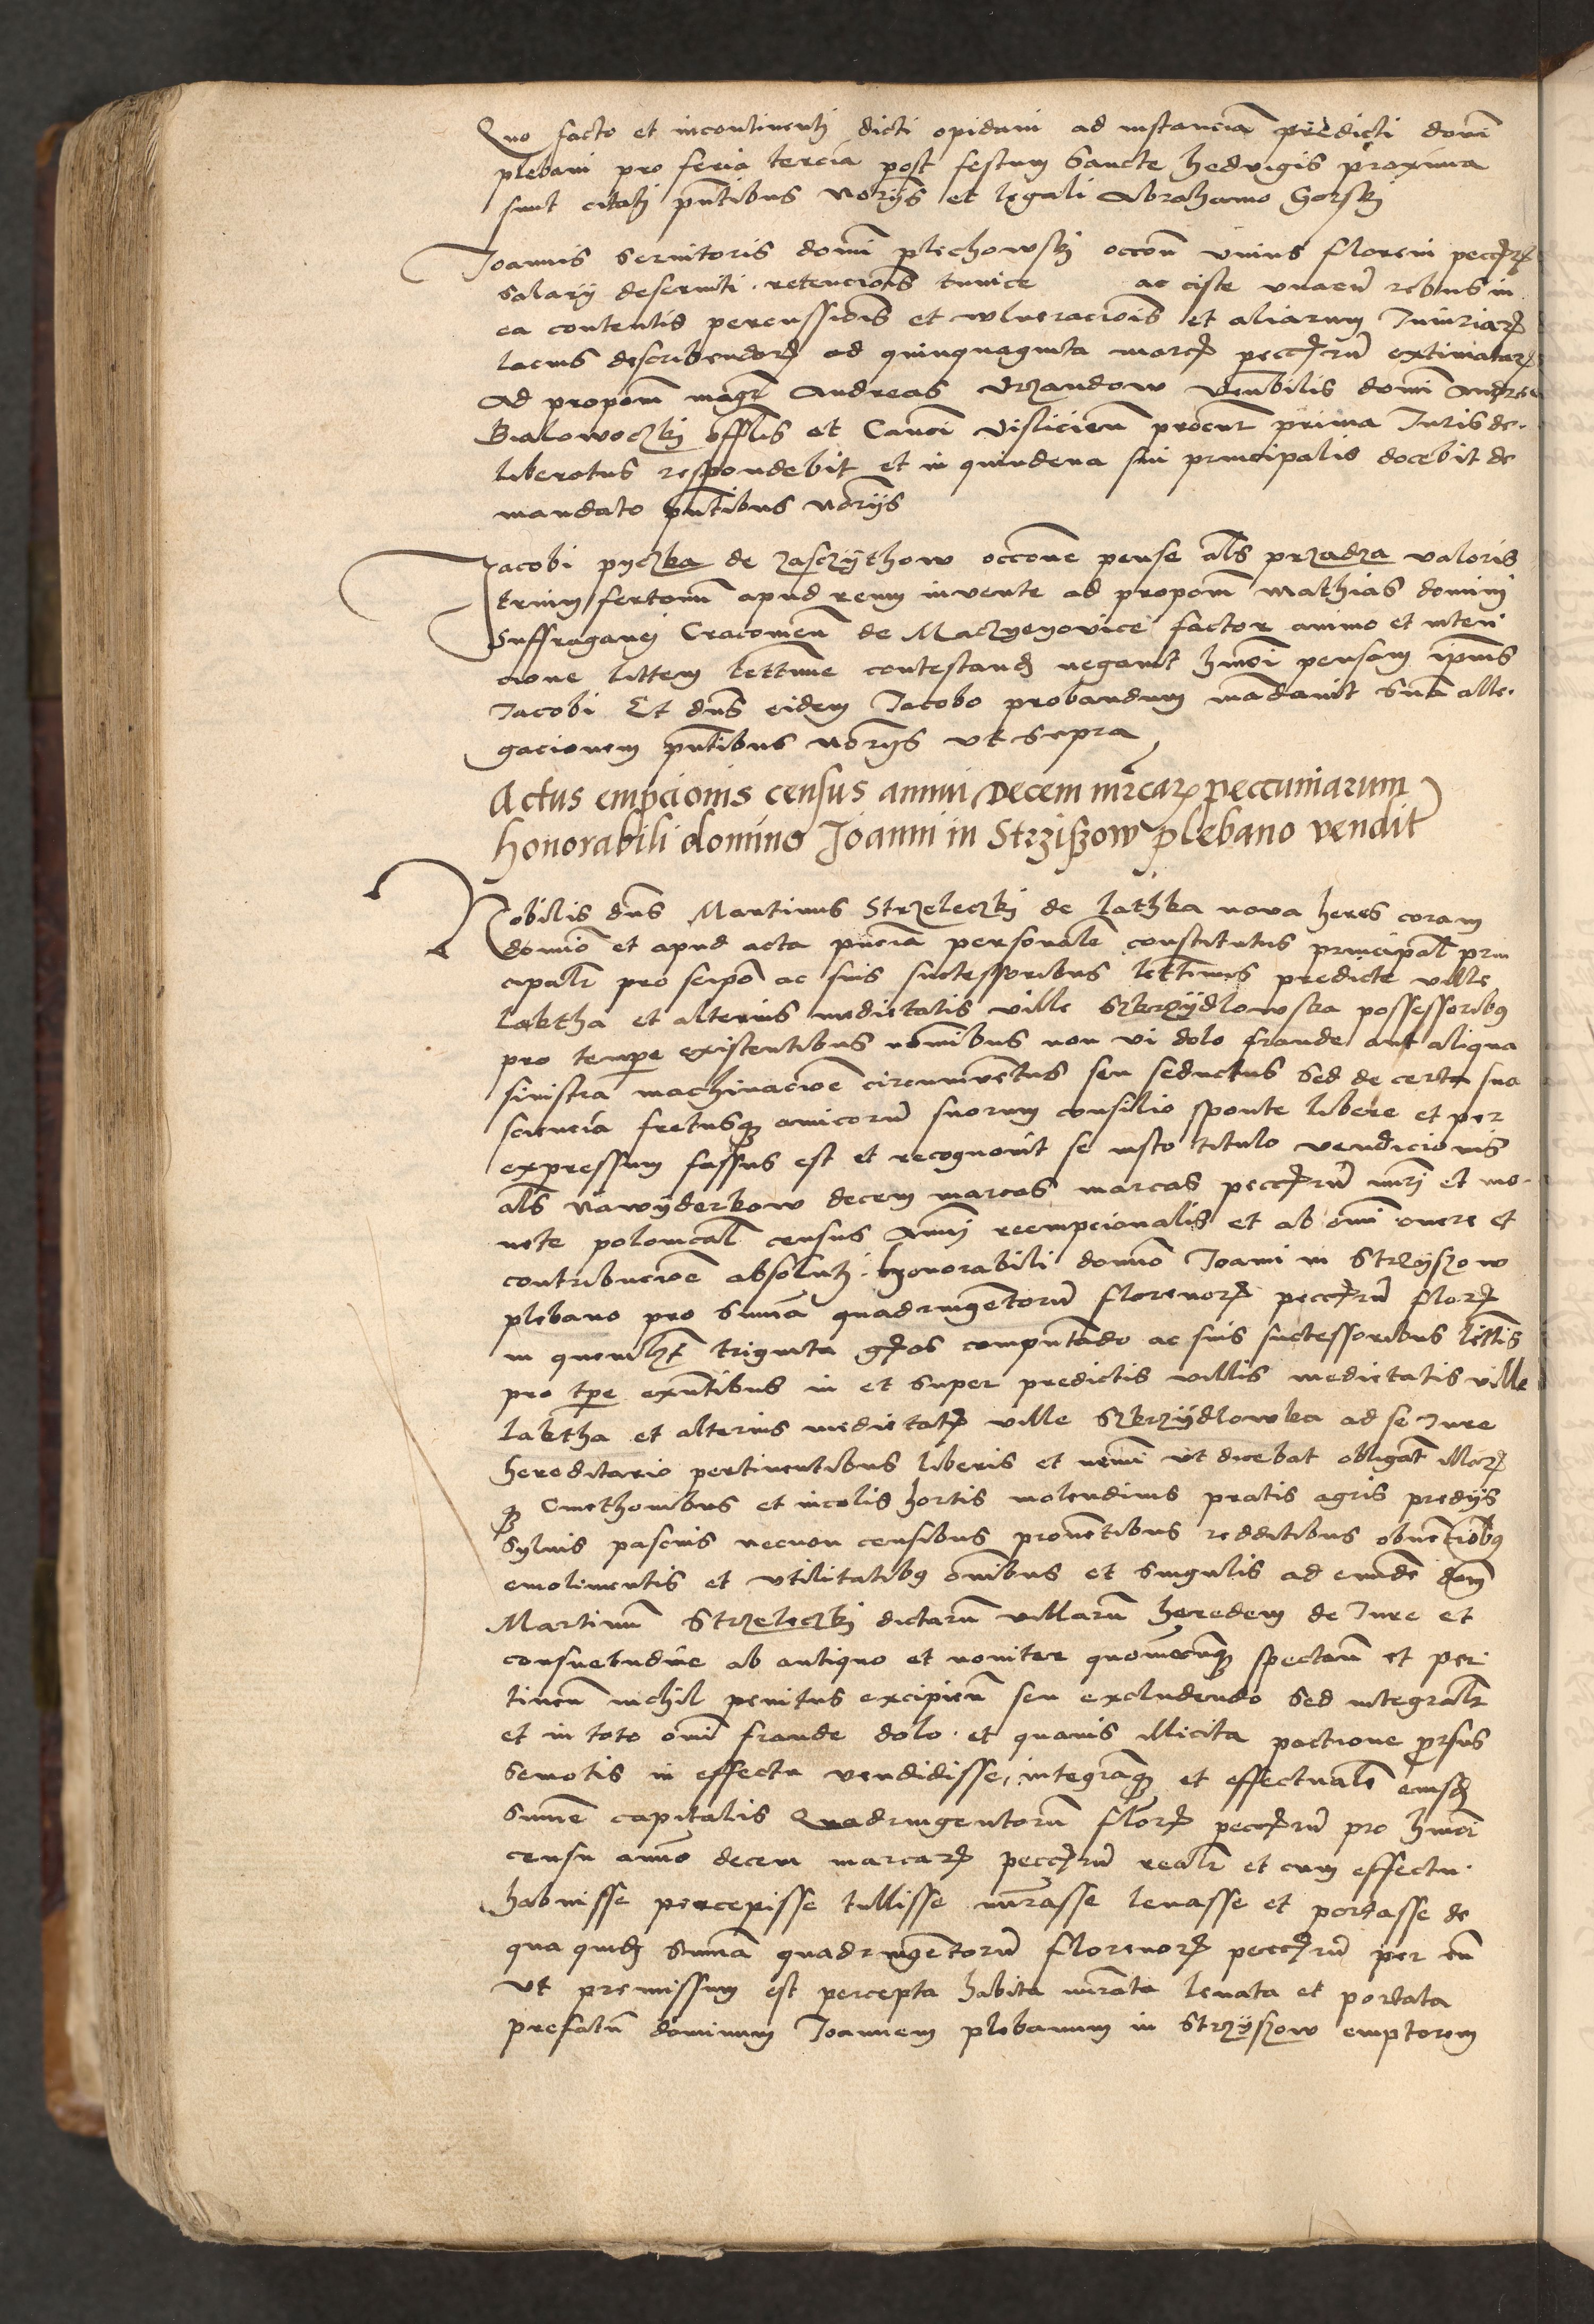 Quo facto et incontinenti dicti opidani ad instanciam predicti domi
plebani pro feria tercia post festum Sancte hedvigis proxima
sunt citati pntibus notrijs et legali Abrahamo Gorskj
Joannis servitoris domi plechowskj occon unius floreni pecc
salarij deserviti retencionis tunice ac ciste unacu rebus in
ea contentis percussionis et wlneracionis et aliarum Iniuriar
lacius describendor ad quinquaginta marc pecc extimatar
Ad propom magr Andreas Vrzandow venbilis domi Andree
Bialowoczkj offlis et Canci Visliciens procur prima Juris de-
liberatus respondebit et in quindena sui principalis docebit de
mandato pntibus notrijs
Jacobi pyczka de zasczythow occone pense als przadza valoris
trium fertonum apud reum invente ad propom Mathias domini
Suffraganei Cracouien de Maczyeyovice factor animo et inten
cione littem lettime contestand negavit hmoi pensam ipius
Jacobi Et dns eidem Jacobo probandum mandavit sua alle-
gacionem pntibus notrijs ut supra
Actus empcionis census annui Decem mrcar peccuniarum
honorabili domino Joanni in Strzißow plebano vendit
Nobilis dns Martinus Strzeleczkj de lathka nova heres coram
domio et apud acta pncia personalr constitutus principalr prin
cipalr pro seipo ac suis successoribus lettimis predicte ville
laktha et alterius medietatis ville Szkrzydlowska possessoribus
pro tempe existentibus nomibus non vi dolo fraude aut aliqua
sinistra machinacioe circumventus seu seductus sed de certa sua
sciencia fretusq amicoru suorum consilio sponte libere et per
expressum fassus est et recognovit se iusto titulo vendicionis
als nawyderkow decem marcas marcas pecc mri et mo-
nete polonical census Annuj reempcionalis et ab omi onere et
contribucioe absoluti honorabili domno Joanni in Strzyszow
plebano pro summa quadringentoru florenor pecc flor
in quemlt triginta gros computado ac suis successoribus lettis
pro tpe exntibus in et super predictis villis medietatis ville
laktha et alterius medietatis ville Szkrzydlowka ad se Jure
hereditario pertinentibus liberis et nemi ut dicebat obligat illor
q Cmethonibus et incolis hortis molendinis pratis agris predijs
Sylvis pascuis necnon censibus proventibus redditibus obventiobus
emolimentis et utilitatibus omibus et singulis ad eunde dom
Martinum Strzeleczkj dictarum villarum heredem de Jure et
consuetudine ab antiquo et noviter quomcunq spectan et per
tinen nichil penitus excipien seu excludendo sed integralr
et in toto omi fraude dolo et quavis illicita pactione prorsus
semotis in effectu vendidisse, integraq et effectuale eiusd
summe capitalis Quadringentorum flor pecc pro hmoi
censu annuo decem marcar pecc realr et cum effectu
habuisse percepisse tullisse mrasse levasse et portasse de
qua quid summa quadringentoru florenor pecc per eu
ut premissum est percepta habita mrata levata et portata
prefatum dominum Joannem plebanum in Strzyszow emptorem